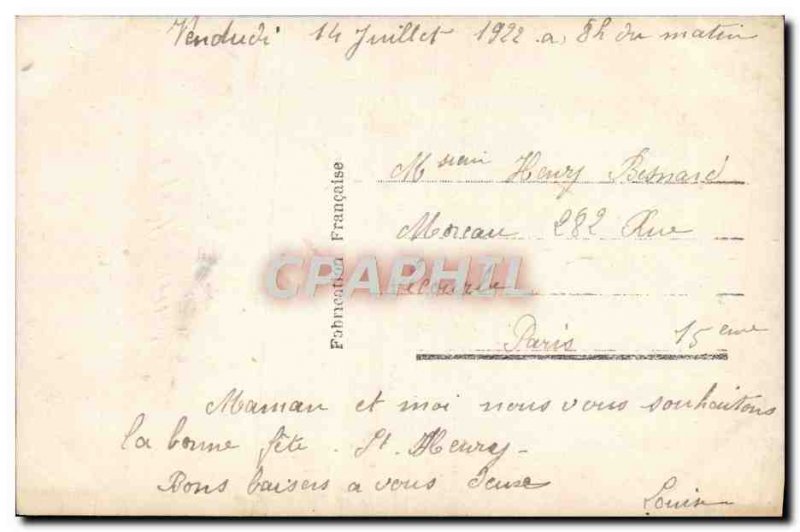 Vendredi 14 Juillet 1922 a 8h du matin
Msieur Henry Besnard
Moreau 282 Rue
Paris 15eme
Fabrication Française
CPAPHIL
Maman et moi nous vous souhaitons
la bonne fête. St Henry-
Bons baisers a vous deux
Louis